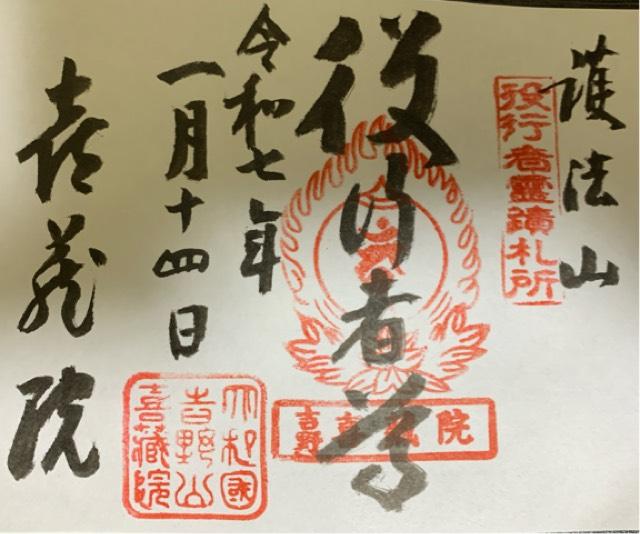 護法山
役行者霊蹟札所
役行者尊
吉野 喜蔵院
令和七年
一月十四日
大和國
吉野山
喜蔵院
喜蔵院